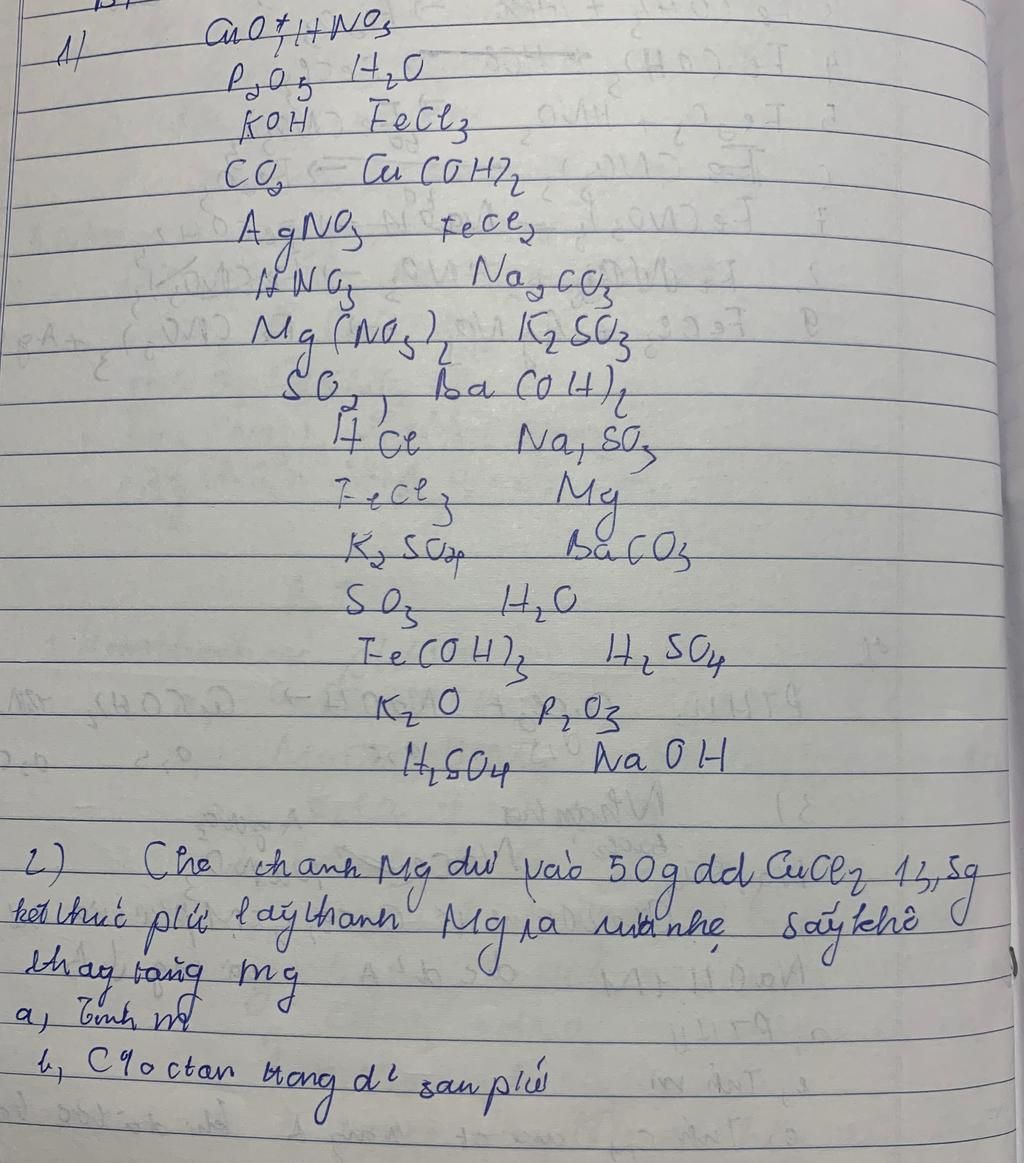 1) CuO + HNO₃
P₂O₅ H₂O
KOH FeCl₃
CO₂ Cu(OH)₂
AgNO₃ FeCl₂
HNO₃ Na₂CO₃
Mg(NO₃)₂ K₂SO₃
SO₂, Ba(OH)₂
HCl Na₂SO₃
FeCl₃ Mg
K₂SO₄ BaCO₃
SO₃ H₂O
Fe(OH)₃ H₂SO₄
K₂O P₂O₃
H₂SO₄ NaOH
2) Cho thanh Mg dư vào 50g dd CuCl₂ 13,5g
kết thúc pứ lấy thanh Mg ra rửa nhẹ sấy khô
thấy tăng mg
a, Tính m
b, C% ctan trong d² sau pứ